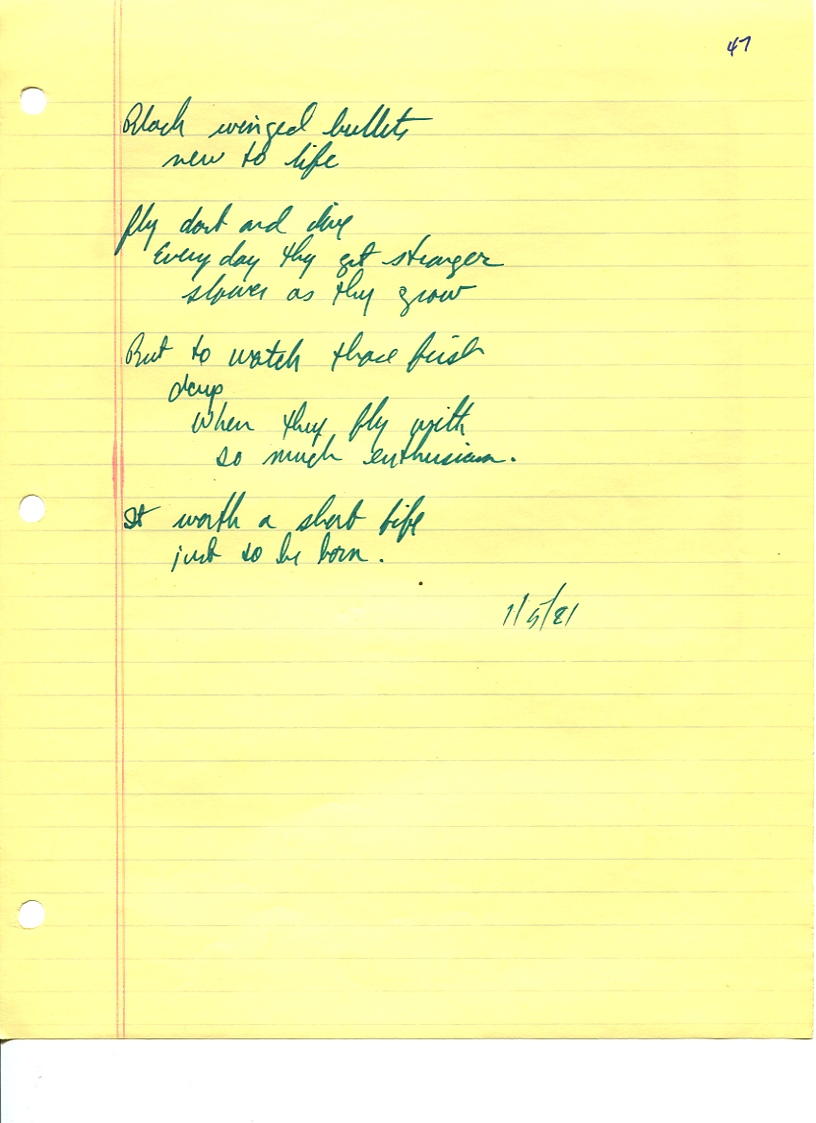 47
Black winged bullets
new to life
fly dart and dive
Every day they get stronger
slower as they grow
But to watch those first
days
When they fly with
so much enthusiasm.
It worth a short life
just to be born.
1/5/81